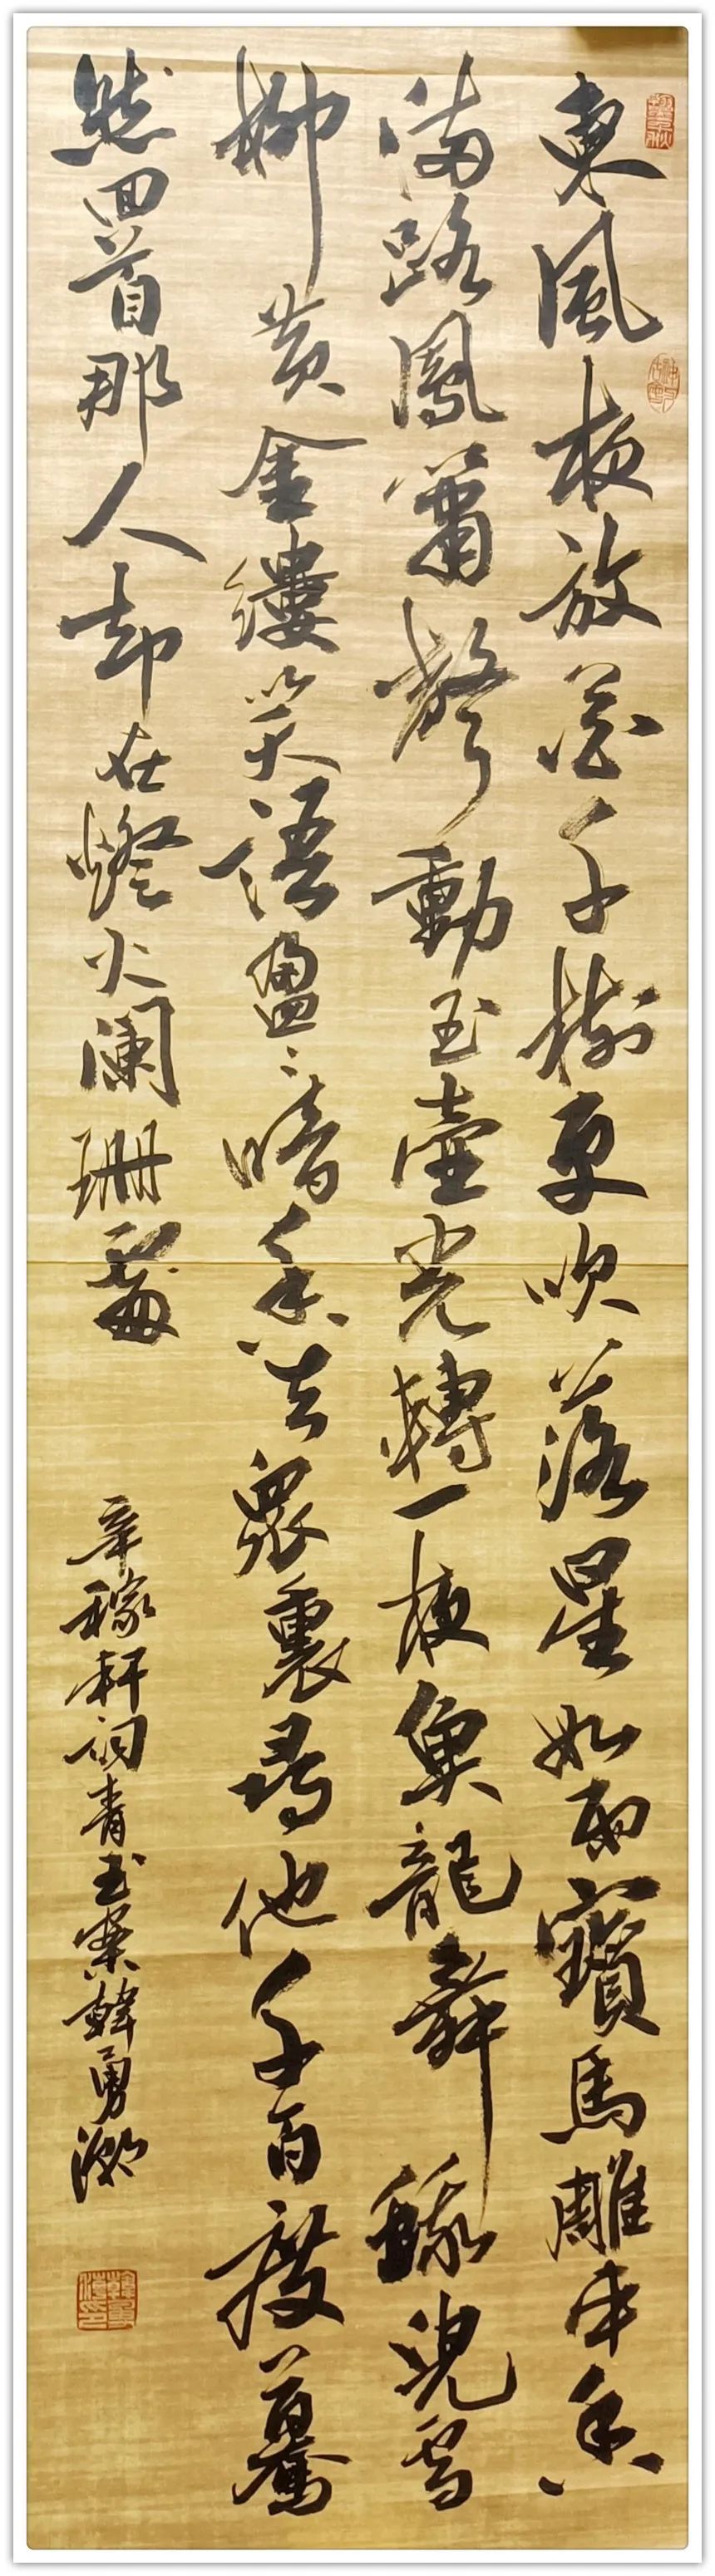 東風夜放花千樹更吹落星如雨寶馬雕車香
滿路鳳簫聲動玉壺光轉一夜魚龍舞蛾兒雪
柳黃金縷笑語盈〻暗香去衆裏尋他千百度驀
然回首那人却在燈火闌珊處
辛稼軒詞青玉案韓勇